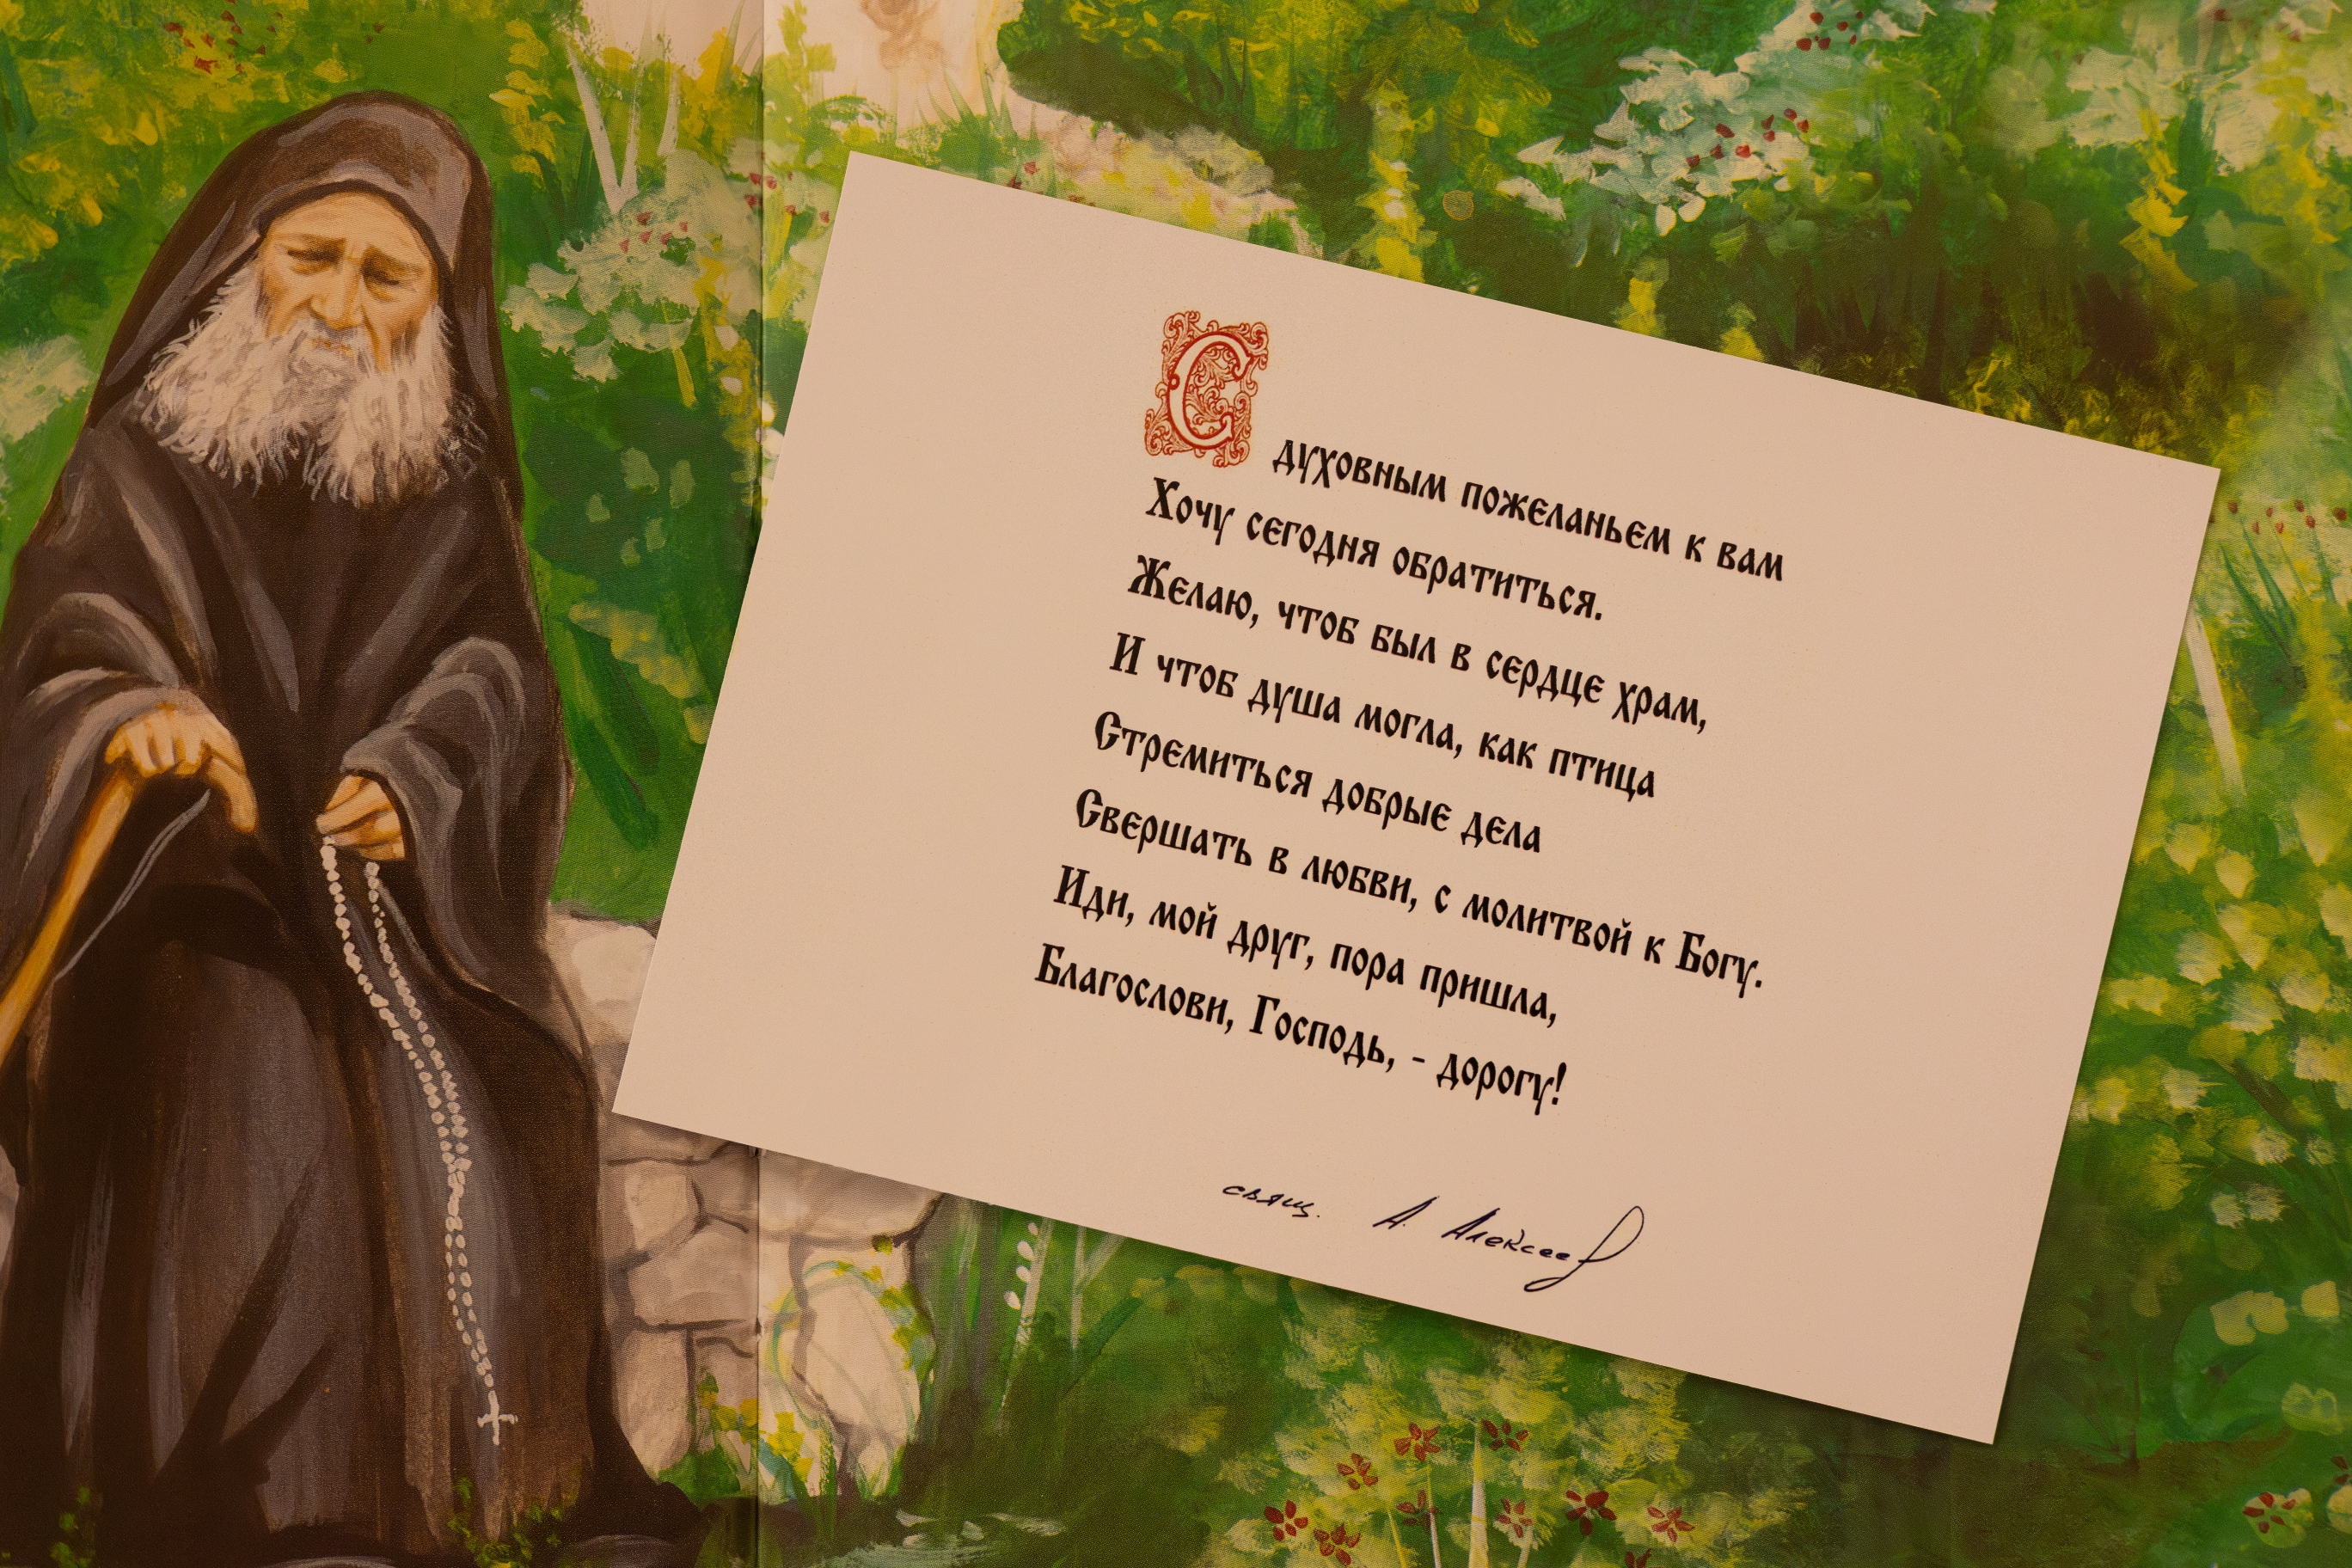 С духовным пожеланьем к вам
Хочу сегодня обратиться.
Желаю, чтоб был в сердце храм,
И чтоб душа могла, как птица
Стремиться добрые дела
Свершать в любви, с молитвой к Богу.
Иди, мой друг, пора пришла,
Благослови, Господь, - дорогу!
свящ. А. Алексеев